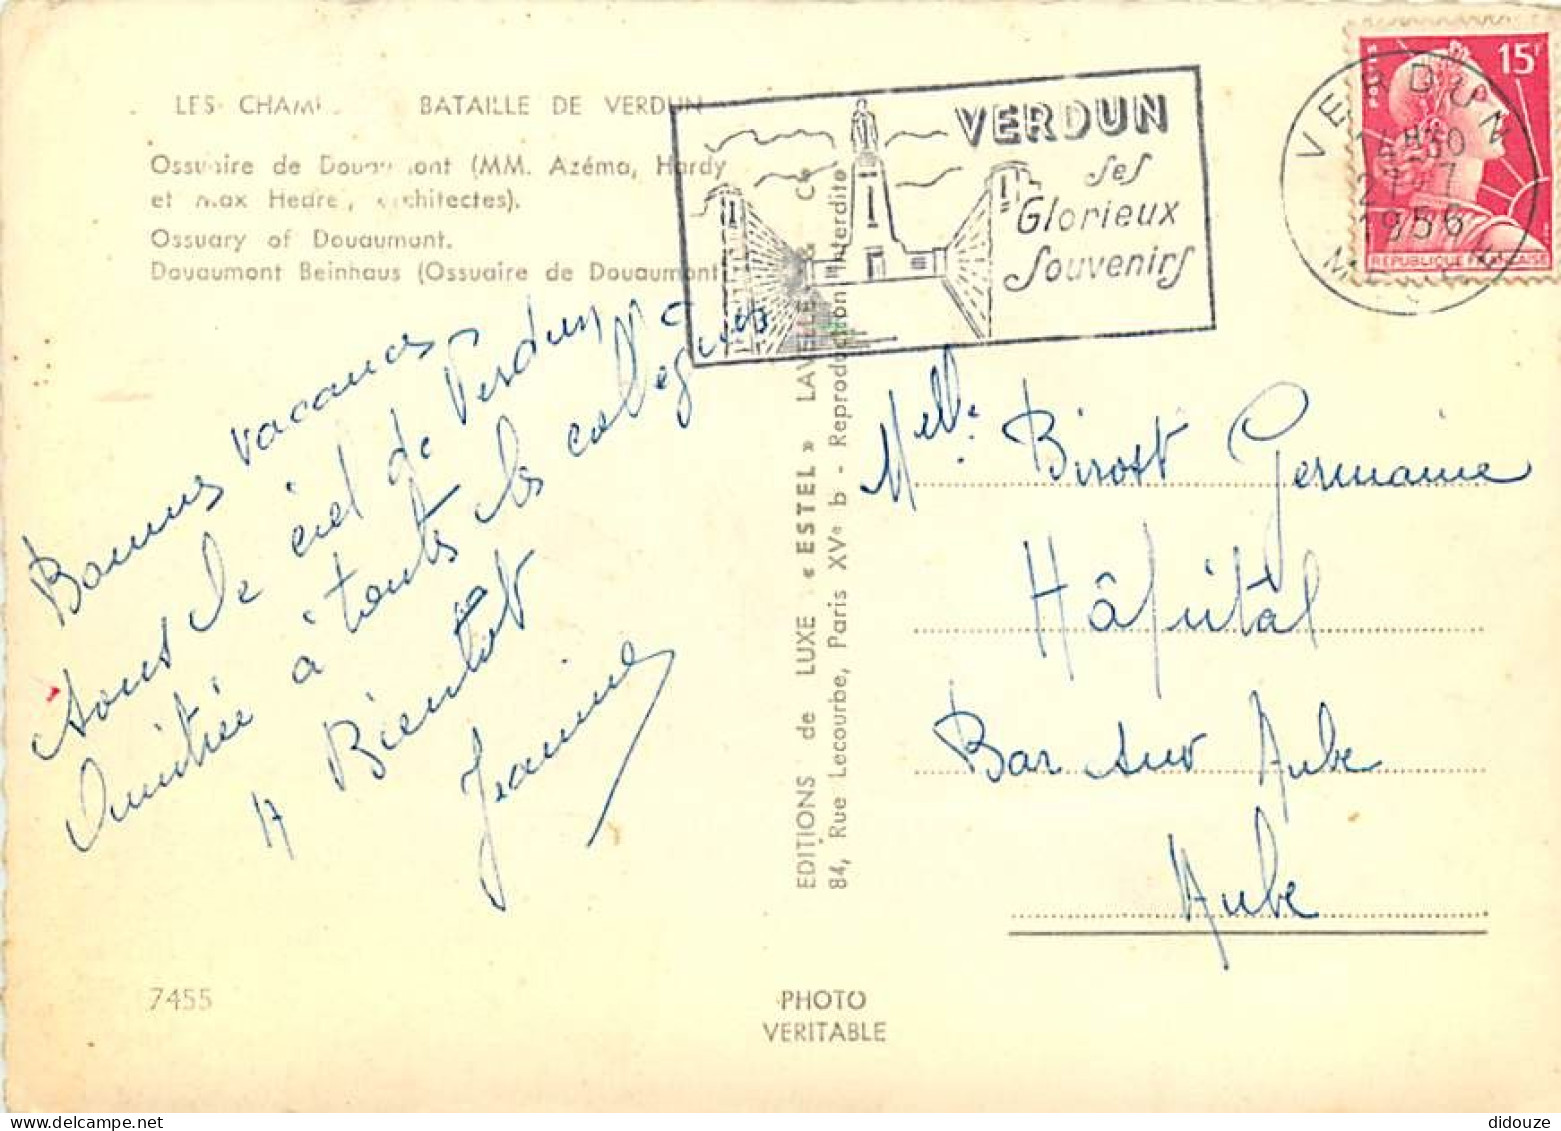 LES CHAM BATAILLE DE VERDUN
Ossuaire de Douaumont (MM. Azéma, Hardy
et Max Hedre, architectes).
Ossuary of Douaumont.
Douaumont Beinhaus (Ossuaire de Douaumont
VERDUN
ses
Glorieux
Souvenirs
VERDUN
1956
MEUSE
POSTES
15F
REPUBLIQUE FRANÇAISE
Bonnes vacances
sous le ciel de Verdun
Amitiée à toutes les collègues
A Bientôt
Jeannine
EDITIONS de LUXE « ESTEL » LAVELLE & Cie
84, Rue Lecourbe, Paris XVe b - Reproduction Interdite
Melle Birost Germaine
Hôpital
Bar sur Aube
Aube
7455
PHOTO
VERITABLE
didouze